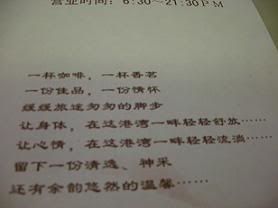 营业时间：6:30~21:30PM
一杯咖啡，一杯香茗
一份佳品，一份情怀
缓缓旅途匆匆的脚步
让身体，在这港湾一畔轻轻舒放……
让心情，在这港湾一畔轻轻流淌……
留下一份清逸、神采
还有余韵悠然的温馨……